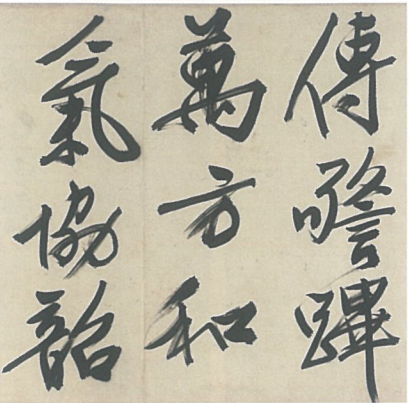 傳警蹕
萬方和
氣協韶